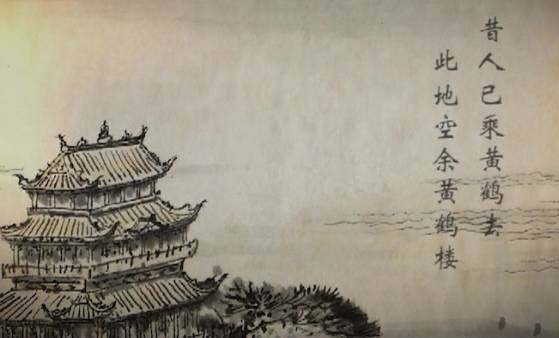 昔人已乘黄鹤去
此地空余黄鹤楼